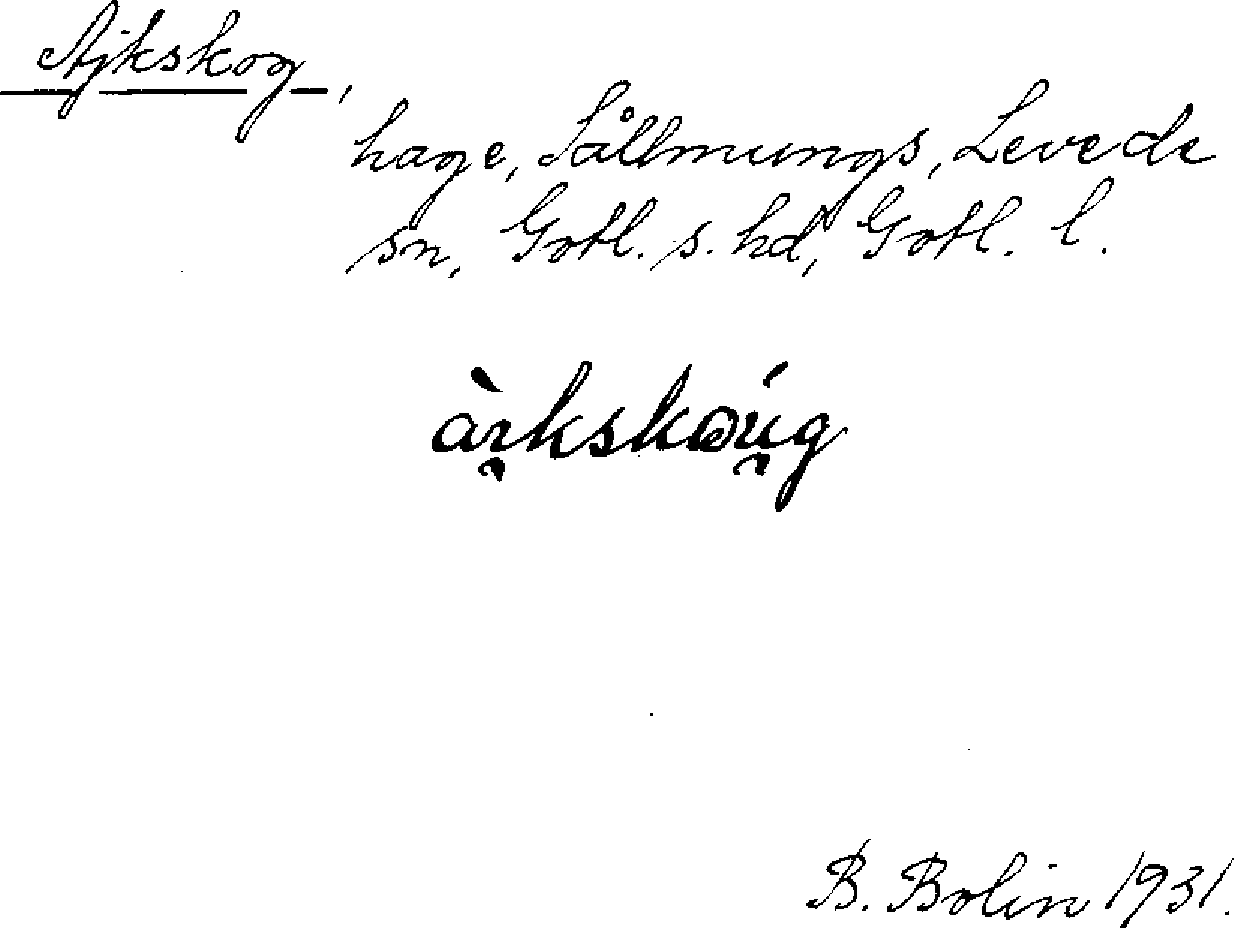 Ajkskog,
hage, Sällmungs, Levede
sn, Gotl. s. hd, Gotl. l.
B. Bolin 1931.